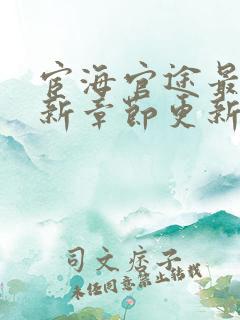 宦海官途最
新章节更新
司文痞子
未经同意禁止转载